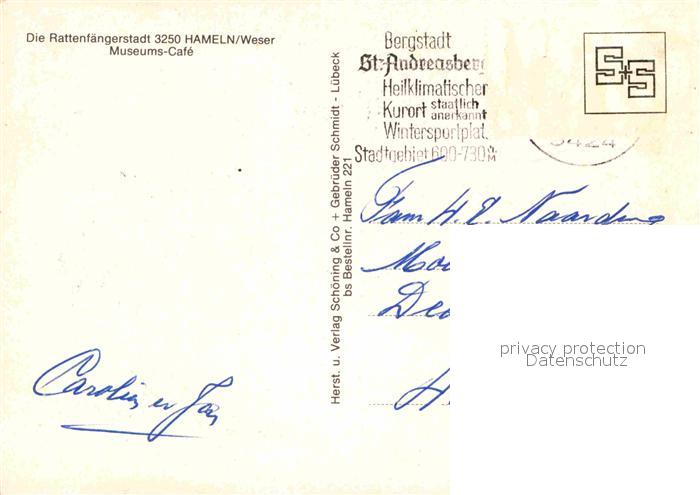 Die Rattenfängerstadt 3250 HAMELN/Weser
Museums-Café
Bergstadt
St. Andreasberg
Heilklimatischer
Kurort staatlich anerkannt
Wintersportplat
Stadtgebiet 600-730 M
3424
S+S
Herst. u. Verlag Schöning & Co + Gebrüder Schmidt - Lübeck
bs Bestellnr. Hameln 221
Fam H.
privacy protection
Datenschutz
H
Carolien en Jan